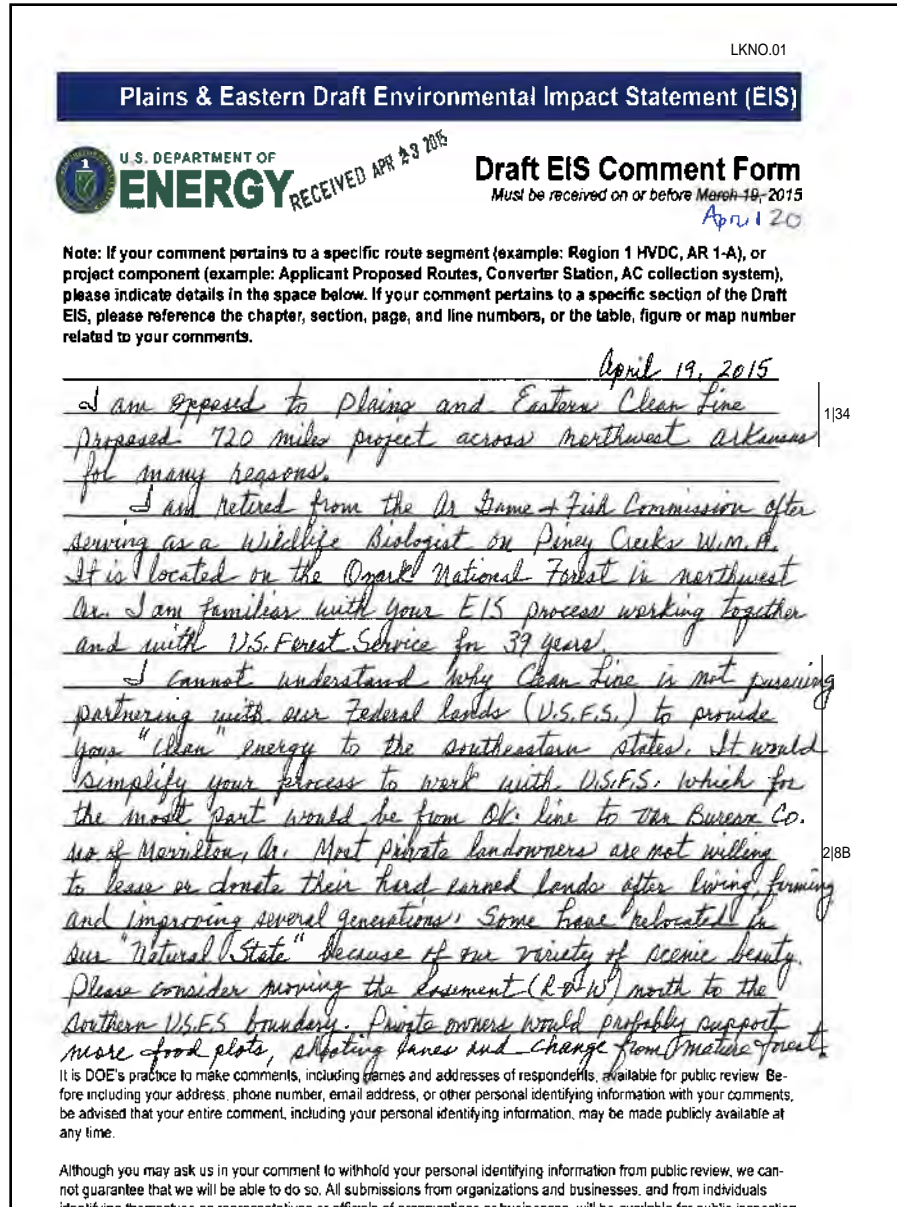 LKNO.01
Plains & Eastern Draft Environmental Impact Statement (EIS)
U.S. DEPARTMENT OF
ENERGY
RECEIVED APR 23 2015
Draft EIS Comment Form
Must be received on or before March 19, 2015
April 20
Note: If your comment pertains to a specific route segment (example: Region 1 HVDC, AR 1-A), or
project component (example: Applicant Proposed Routes, Converter Station, AC collection system),
please indicate details in the space below. If your comment pertains to a specific section of the Draft
EIS, please reference the chapter, section, page, and line numbers, or the table, figure or map number
related to your comments.
April 19, 2015
I am opposed to Plains and Eastern Clean Line
proposed 720 miles project across northwest arkansas
1|34
for many reasons.
I am retired from the Ar Game + Fish Commission after
serving as a Wildlife Biologist on Piney Creeks W.M.A.
It is located on the Ozark National Forest in northwest
Ar. I am familiar with your EIS process working together
and with U.S. Forest Service for 39 years.
I cannot understand why Clean Line is not pursuing
partnering with our Federal lands (U.S.F.S.) to provide
your "clean" energy to the southeastern states. It would
simplify your process to work with U.S.F.S. which for
the most part would be from Ok. line to Van Buren Co.
no of Morrilton, Ar. Most private landowners are not willing
2|8B
to lease or donate their hard earned lands after living, farming
and improving several generations. Some have relocated in
our "Natural State" because of our variety of scenic beauty.
Please consider moving the easement (R-O-W) north to the
southern U.S.F.S boundary. Private owners would probably support
more food plots, shooting lanes and change from mature forest.
It is DOE's practice to make comments, including names and addresses of respondents, available for public review. Be-
fore including your address, phone number, email address, or other personal identifying information with your comments,
be advised that your entire comment, including your personal identifying information, may be made publicly available at
any time.
Although you may ask us in your comment to withhold your personal identifying information from public review, we can-
not guarantee that we will be able to do so. All submissions from organizations and businesses, and from individuals
identifying themselves as representatives or officials of organizations or businesses, will be available for public inspection